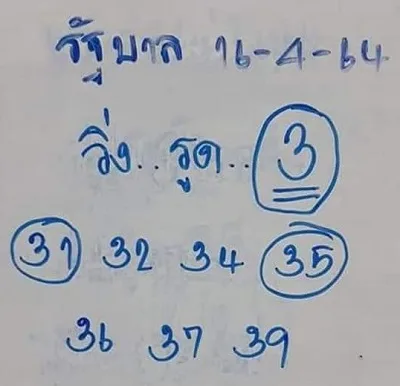 รัฐบาล 16-4-64
วิ่ง..รูด.. 3
31 32 34 35
36 37 39